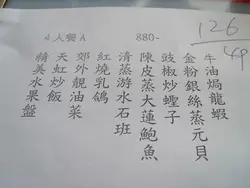 4人餐A 880-
126
4p
牛油焗龍蝦
金粉銀絲蒸元貝
豉椒炒蟶子
陳皮蒸大蓮鮑魚
清蒸游水石班
紅燒乳鴿
郊外靚油菜
天虹炒飯
精美水果盤